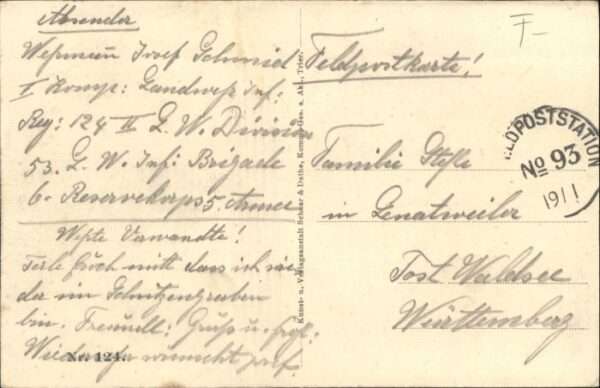 Absender
Wehrmann Josef Schmid
I Komp: Landwehr Inf:
Reg: 124 II L. W. Division
53. L. W. Inf: Brigade
6. Reservekorps 5. Armee
Werte Verwandte!
Teile Euch mitt dass ich wie
da im Schützengraben
bin. Freundl: Gruß u. frohes
Wiedersehn wünscht Josef
No. 124.
Kunst- u. Verlagsanstalt Schaar & Dathe, Komm.-Ges. a. Akt., Trier.
F-
Feldpostkarte!
FELDPOSTSTATION
No 93
19 11
Familie
in
Post Waldsee
Württemberg